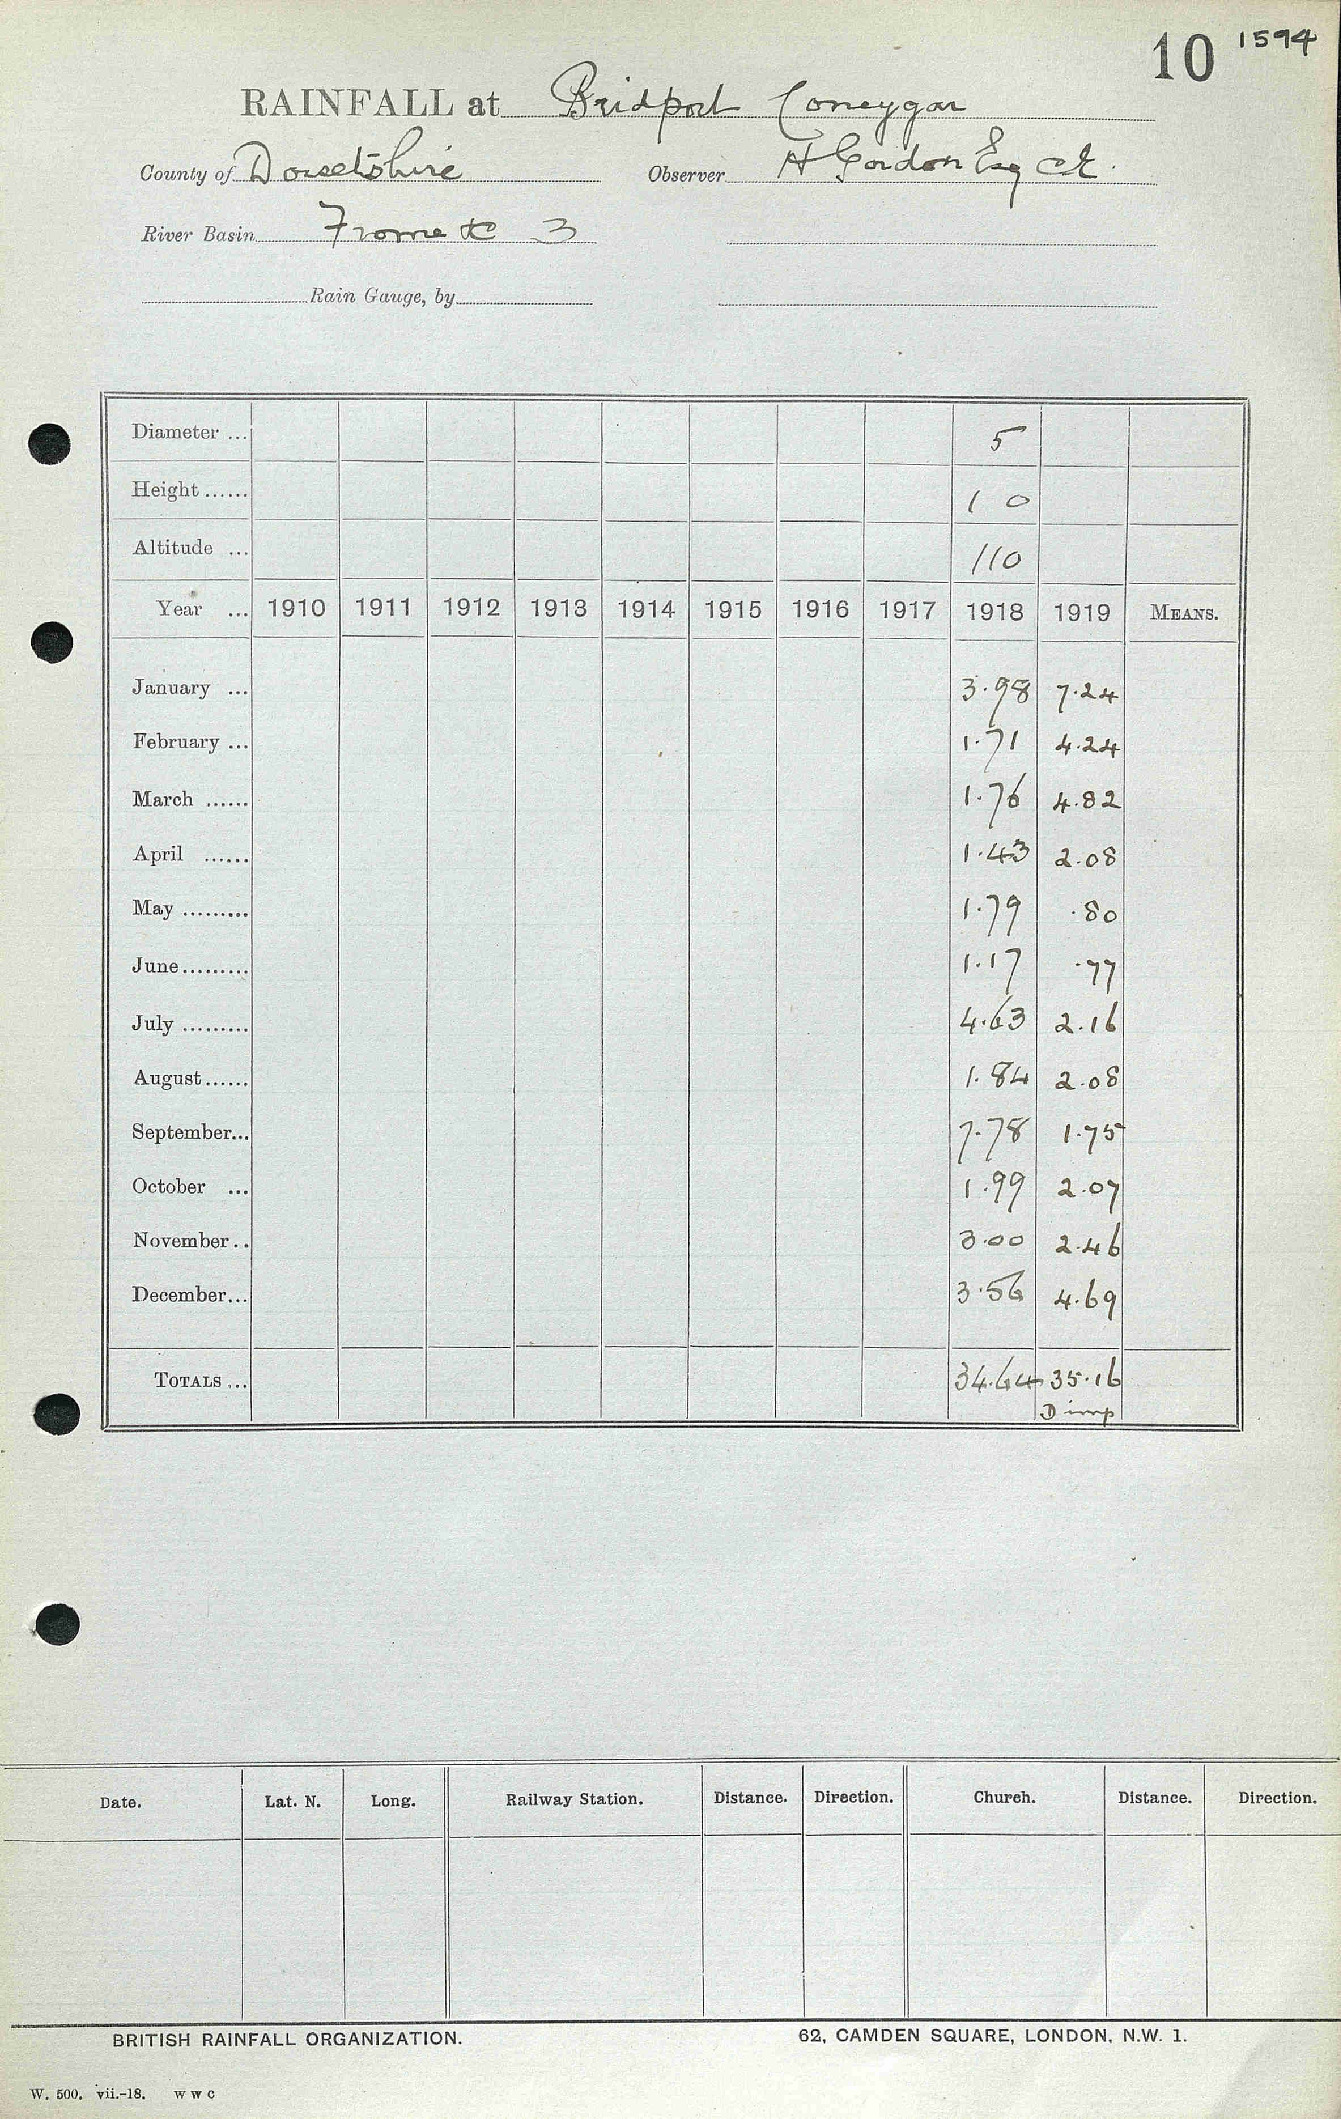 10 1594
RAINFALL at Bridport Coneygar
County of Dorsetshire Observer H Gordon Esq CE.
River Basin Frome &c 3
Rain Gauge, by
Diameter ... 5
Height ...... 1 0
Altitude ... 110
Year ... 1910 1911 1912 1913 1914 1915 1916 1917 1918 1919 MEANS.
January ... 3.98 7.24
February ... 1.71 4.24
March ...... 1.76 4.82
April ...... 1.43 2.08
May ......... 1.79 .80
June......... 1.17 .77
July ......... 4.63 2.16
August...... 1.84 2.08
September... 7.78 1.75
October ... 1.99 2.07
November.. 3.00 2.46
December... 3.56 4.69
TOTALS ... 34.64 35.16
D imp
Date. Lat. N. Long. Railway Station. Distance. Direction. Church. Distance. Direction.
BRITISH RAINFALL ORGANIZATION. 62, CAMDEN SQUARE, LONDON, N.W. 1.
W. 500. vii.-18. W W C